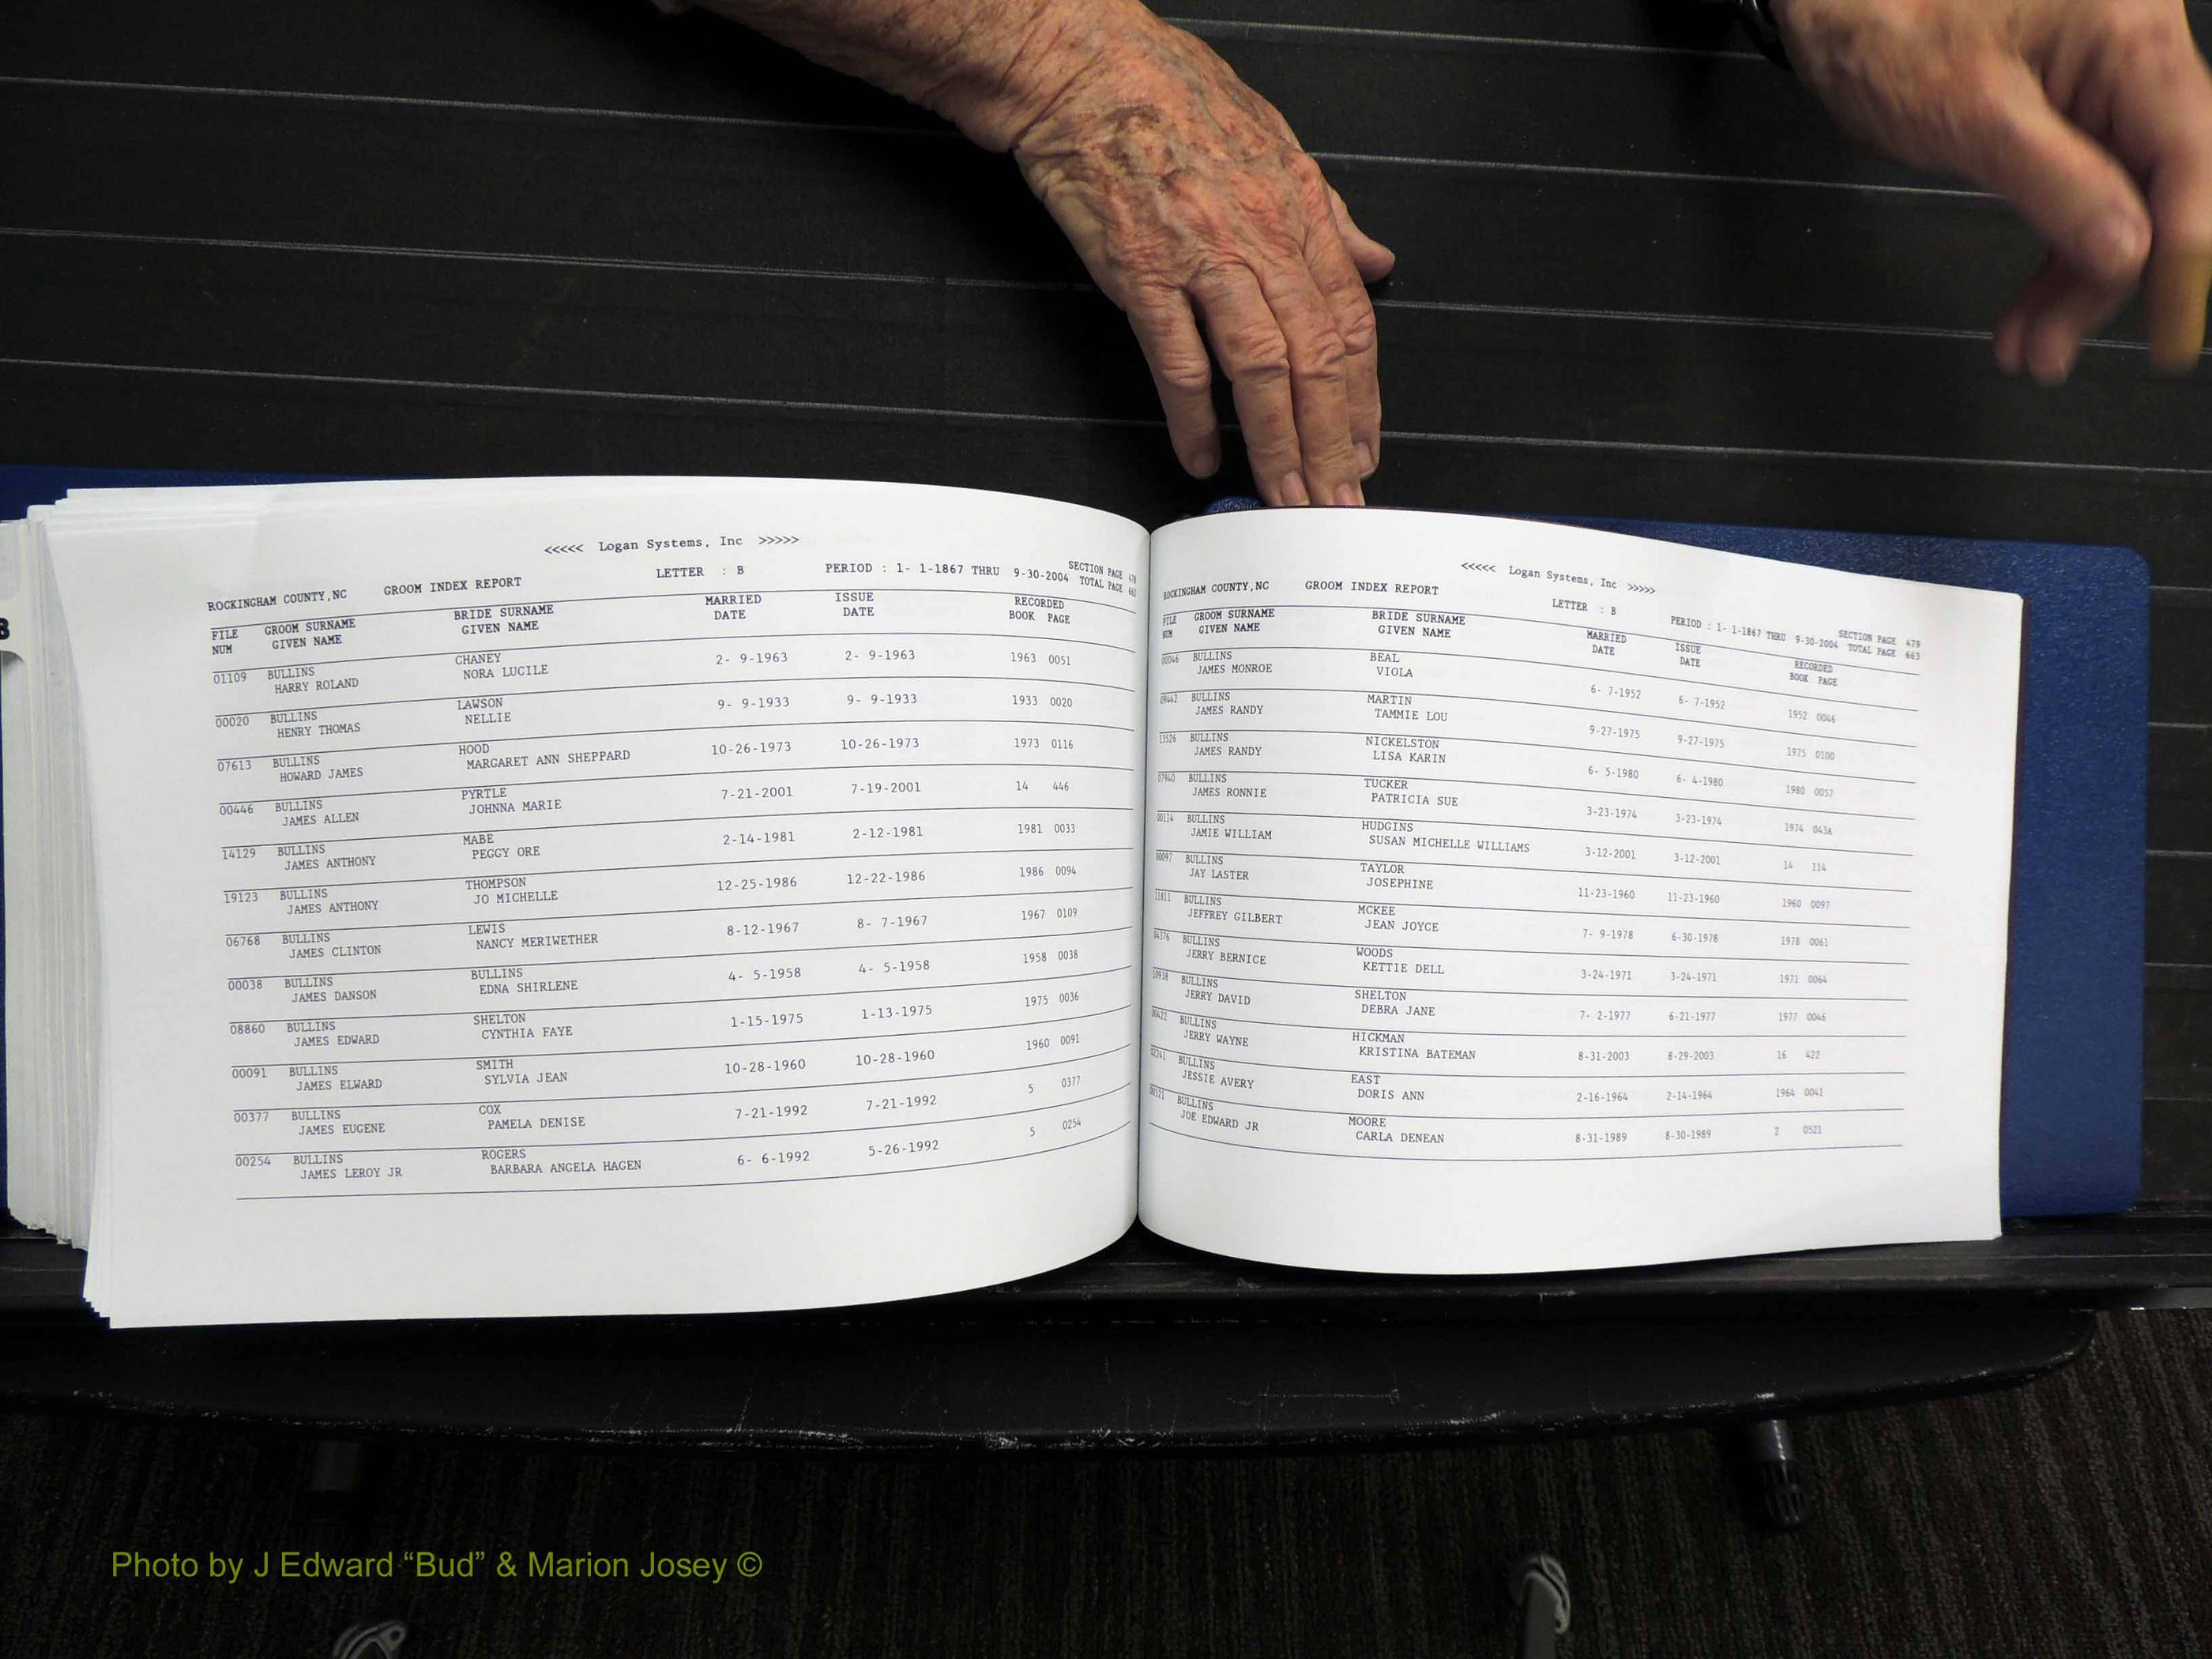 <<<<< Logan Systems, Inc >>>>>
ROCKINGHAM COUNTY,NC GROOM INDEX REPORT LETTER : B PERIOD : 1- 1-1867 THRU 9-30-2004 SECTION PAGE
TOTAL PAGE
FILE GROOM SURNAME BRIDE SURNAME MARRIED ISSUE RECORDED
NUM GIVEN NAME GIVEN NAME DATE DATE BOOK PAGE
01109 BULLINS CHANEY 2- 9-1963 2- 9-1963 1963 0051
HARRY ROLAND NORA LUCILE
00020 BULLINS LAWSON 9- 9-1933 9- 9-1933 1933 0020
HENRY THOMAS NELLIE
07613 BULLINS HOOD 10-26-1973 10-26-1973 1973 0116
HOWARD JAMES MARGARET ANN SHEPPARD
00446 BULLINS PYRTLE 7-21-2001 7-19-2001 14 446
JAMES ALLEN JOHNNA MARIE
14129 BULLINS MABE 2-14-1981 2-12-1981 1981 0033
JAMES ANTHONY PEGGY ORE
19123 BULLINS THOMPSON 12-25-1986 12-22-1986 1986 0094
JAMES ANTHONY JO MICHELLE
06768 BULLINS LEWIS 8-12-1967 8- 7-1967 1967 0109
JAMES CLINTON NANCY MERIWETHER
00038 BULLINS BULLINS 4- 5-1958 4- 5-1958 1958 0038
JAMES DANSON EDNA SHIRLENE
08860 BULLINS SHELTON 1-15-1975 1-13-1975 1975 0036
JAMES EDWARD CYNTHIA FAYE
00091 BULLINS SMITH 10-28-1960 10-28-1960 1960 0091
JAMES ELWARD SYLVIA JEAN
00377 BULLINS COX 7-21-1992 7-21-1992 5 0377
JAMES EUGENE PAMELA DENISE
00254 BULLINS ROGERS 6- 6-1992 5-26-1992 5 0254
JAMES LEROY JR BARBARA ANGELA HAGEN
<<<<< Logan Systems, Inc >>>>>
ROCKINGHAM COUNTY,NC GROOM INDEX REPORT LETTER : B PERIOD : 1- 1-1867 THRU 9-30-2004 SECTION PAGE 479
TOTAL PAGE 663
FILE GROOM SURNAME BRIDE SURNAME MARRIED ISSUE RECORDED
NUM GIVEN NAME GIVEN NAME DATE DATE BOOK PAGE
00046 BULLINS BEAL 6- 7-1952 6- 7-1952 1952 0046
JAMES MONROE VIOLA
09442 BULLINS MARTIN 9-27-1975 9-27-1975 1975 0100
JAMES RANDY TAMMIE LOU
13526 BULLINS NICKELSTON 6- 5-1980 6- 4-1980 1980 0057
JAMES RANDY LISA KARIN
07940 BULLINS TUCKER 3-23-1974 3-23-1974 1974 043A
JAMES RONNIE PATRICIA SUE
00114 BULLINS HUDGINS 3-12-2001 3-12-2001 14 114
JAMIE WILLIAM SUSAN MICHELLE WILLIAMS
00097 BULLINS TAYLOR 11-23-1960 11-23-1960 1960 0097
JAY LASTER JOSEPHINE
11811 BULLINS MCKEE 7- 9-1978 6-30-1978 1978 0061
JEFFREY GILBERT JEAN JOYCE
04376 BULLINS WOODS 3-24-1971 3-24-1971 1971 0064
JERRY BERNICE KETTIE DELL
10938 BULLINS SHELTON 7- 2-1977 6-21-1977 1977 0046
JERRY DAVID DEBRA JANE
00422 BULLINS HICKMAN 8-31-2003 8-29-2003 16 422
JERRY WAYNE KRISTINA BATEMAN
BULLINS EAST 2-16-1964 2-14-1964 1964 0041
JESSIE AVERY DORIS ANN
00521 BULLINS MOORE 8-31-1989 8-30-1989 2 0521
JOE EDWARD JR CARLA DENEAN
Photo by J Edward “Bud” & Marion Josey ©